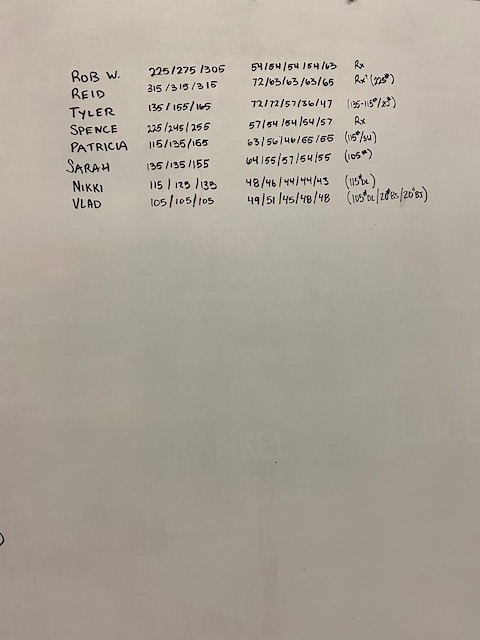 ROB W. 225/275/305 54/54/54/54/63 Rx
REID 315/315/315 72/63/63/63/65 Rx+ (225#)
TYLER 135/155/165 72/72/57/36/47 (135-115#/23")
SPENCE 225/245/255 57/54/54/54/57 Rx
PATRICIA 115/135/155 63/56/46/55/55 (115#/SU)
SARAH 135/135/155 64/55/57/54/55 (105#)
NIKKI 115/125/135 48/46/44/44/43 (115#DL)
VLAD 105/105/105 49/51/45/48/48 (105#DL/20#BS/20"BJ)
KANKEL
LUCE